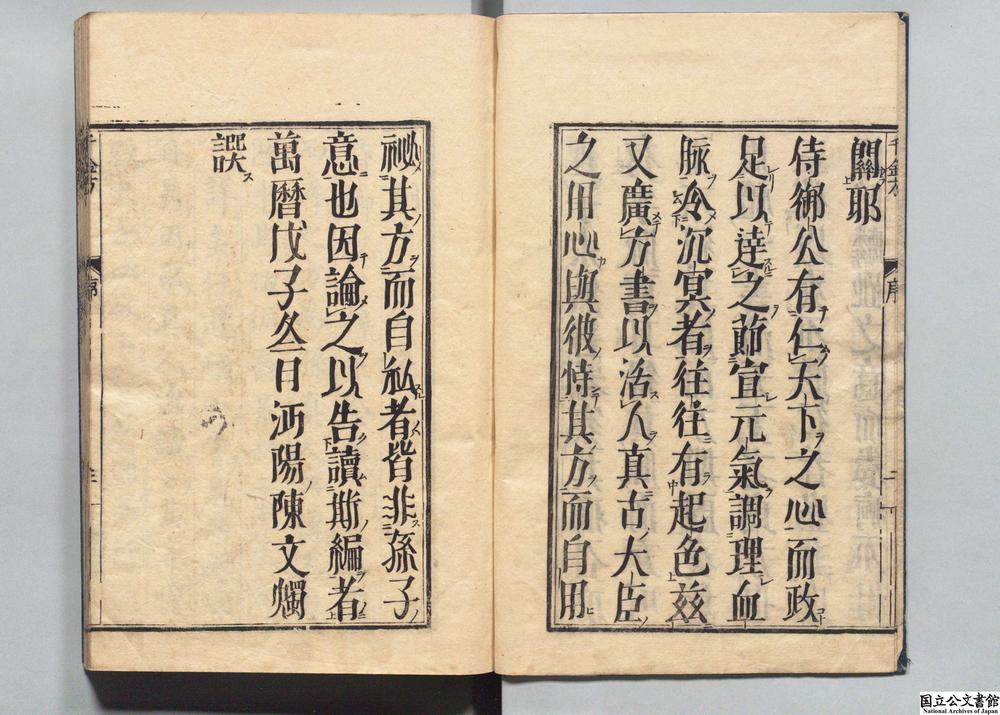 關耶
侍御公有仁天下之心而政
足以達之節宣元氣調理血
脉令沉冥者往往有起色兹
又廣方書以活人真古大臣
之用心與彼恃其方而自用
祕其方而自私者皆非孫子
意也因論之以告讀斯編者
萬曆戊子冬日沔陽陳文燭
譔
千金方
序
国立公文書館
National Archives of Japan